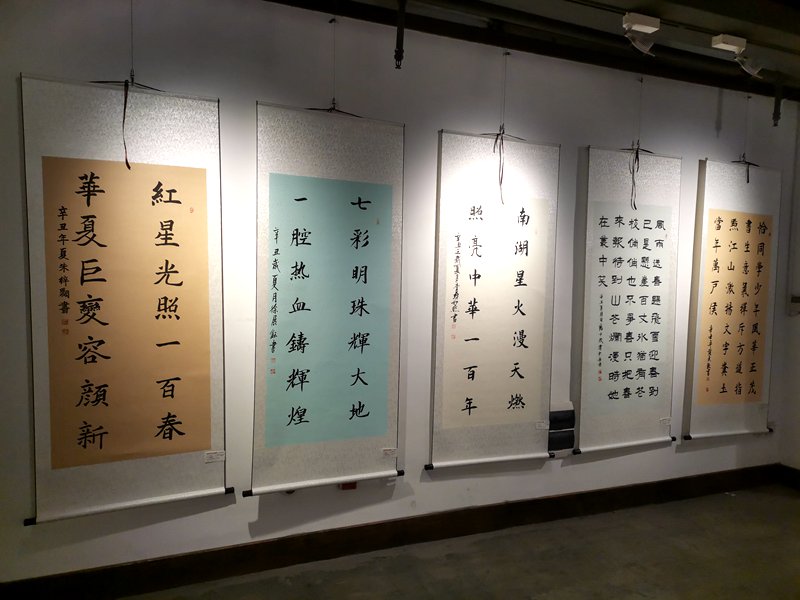 紅星光照一百春
華夏巨變容顔新
辛丑年夏朱梓顥書
七彩明珠輝大地
一腔热血鑄輝煌
辛丑歲夏月徐展書
南湖星火漫天燃
照亮中華一百年
風雨送春歸飛雪迎春到
已是懸崖百丈冰猶有花
枝俏俏也不爭春只把春
來報待到山花爛漫時她
在叢中笑
恰同學少年風華正茂
書生意氣揮斥方遒指
点江山激揚文字糞土
當年萬戶侯